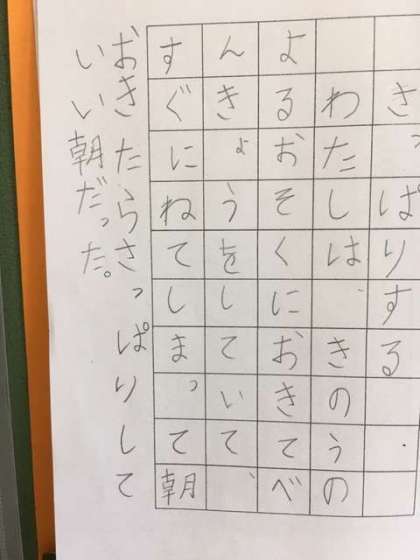 きっぱりする
わたしは、きのうの
よるおそくにおきてべ
んきょうをしていて、
すぐにねてしまって朝
おきたらさっぱりして
いい朝だった。